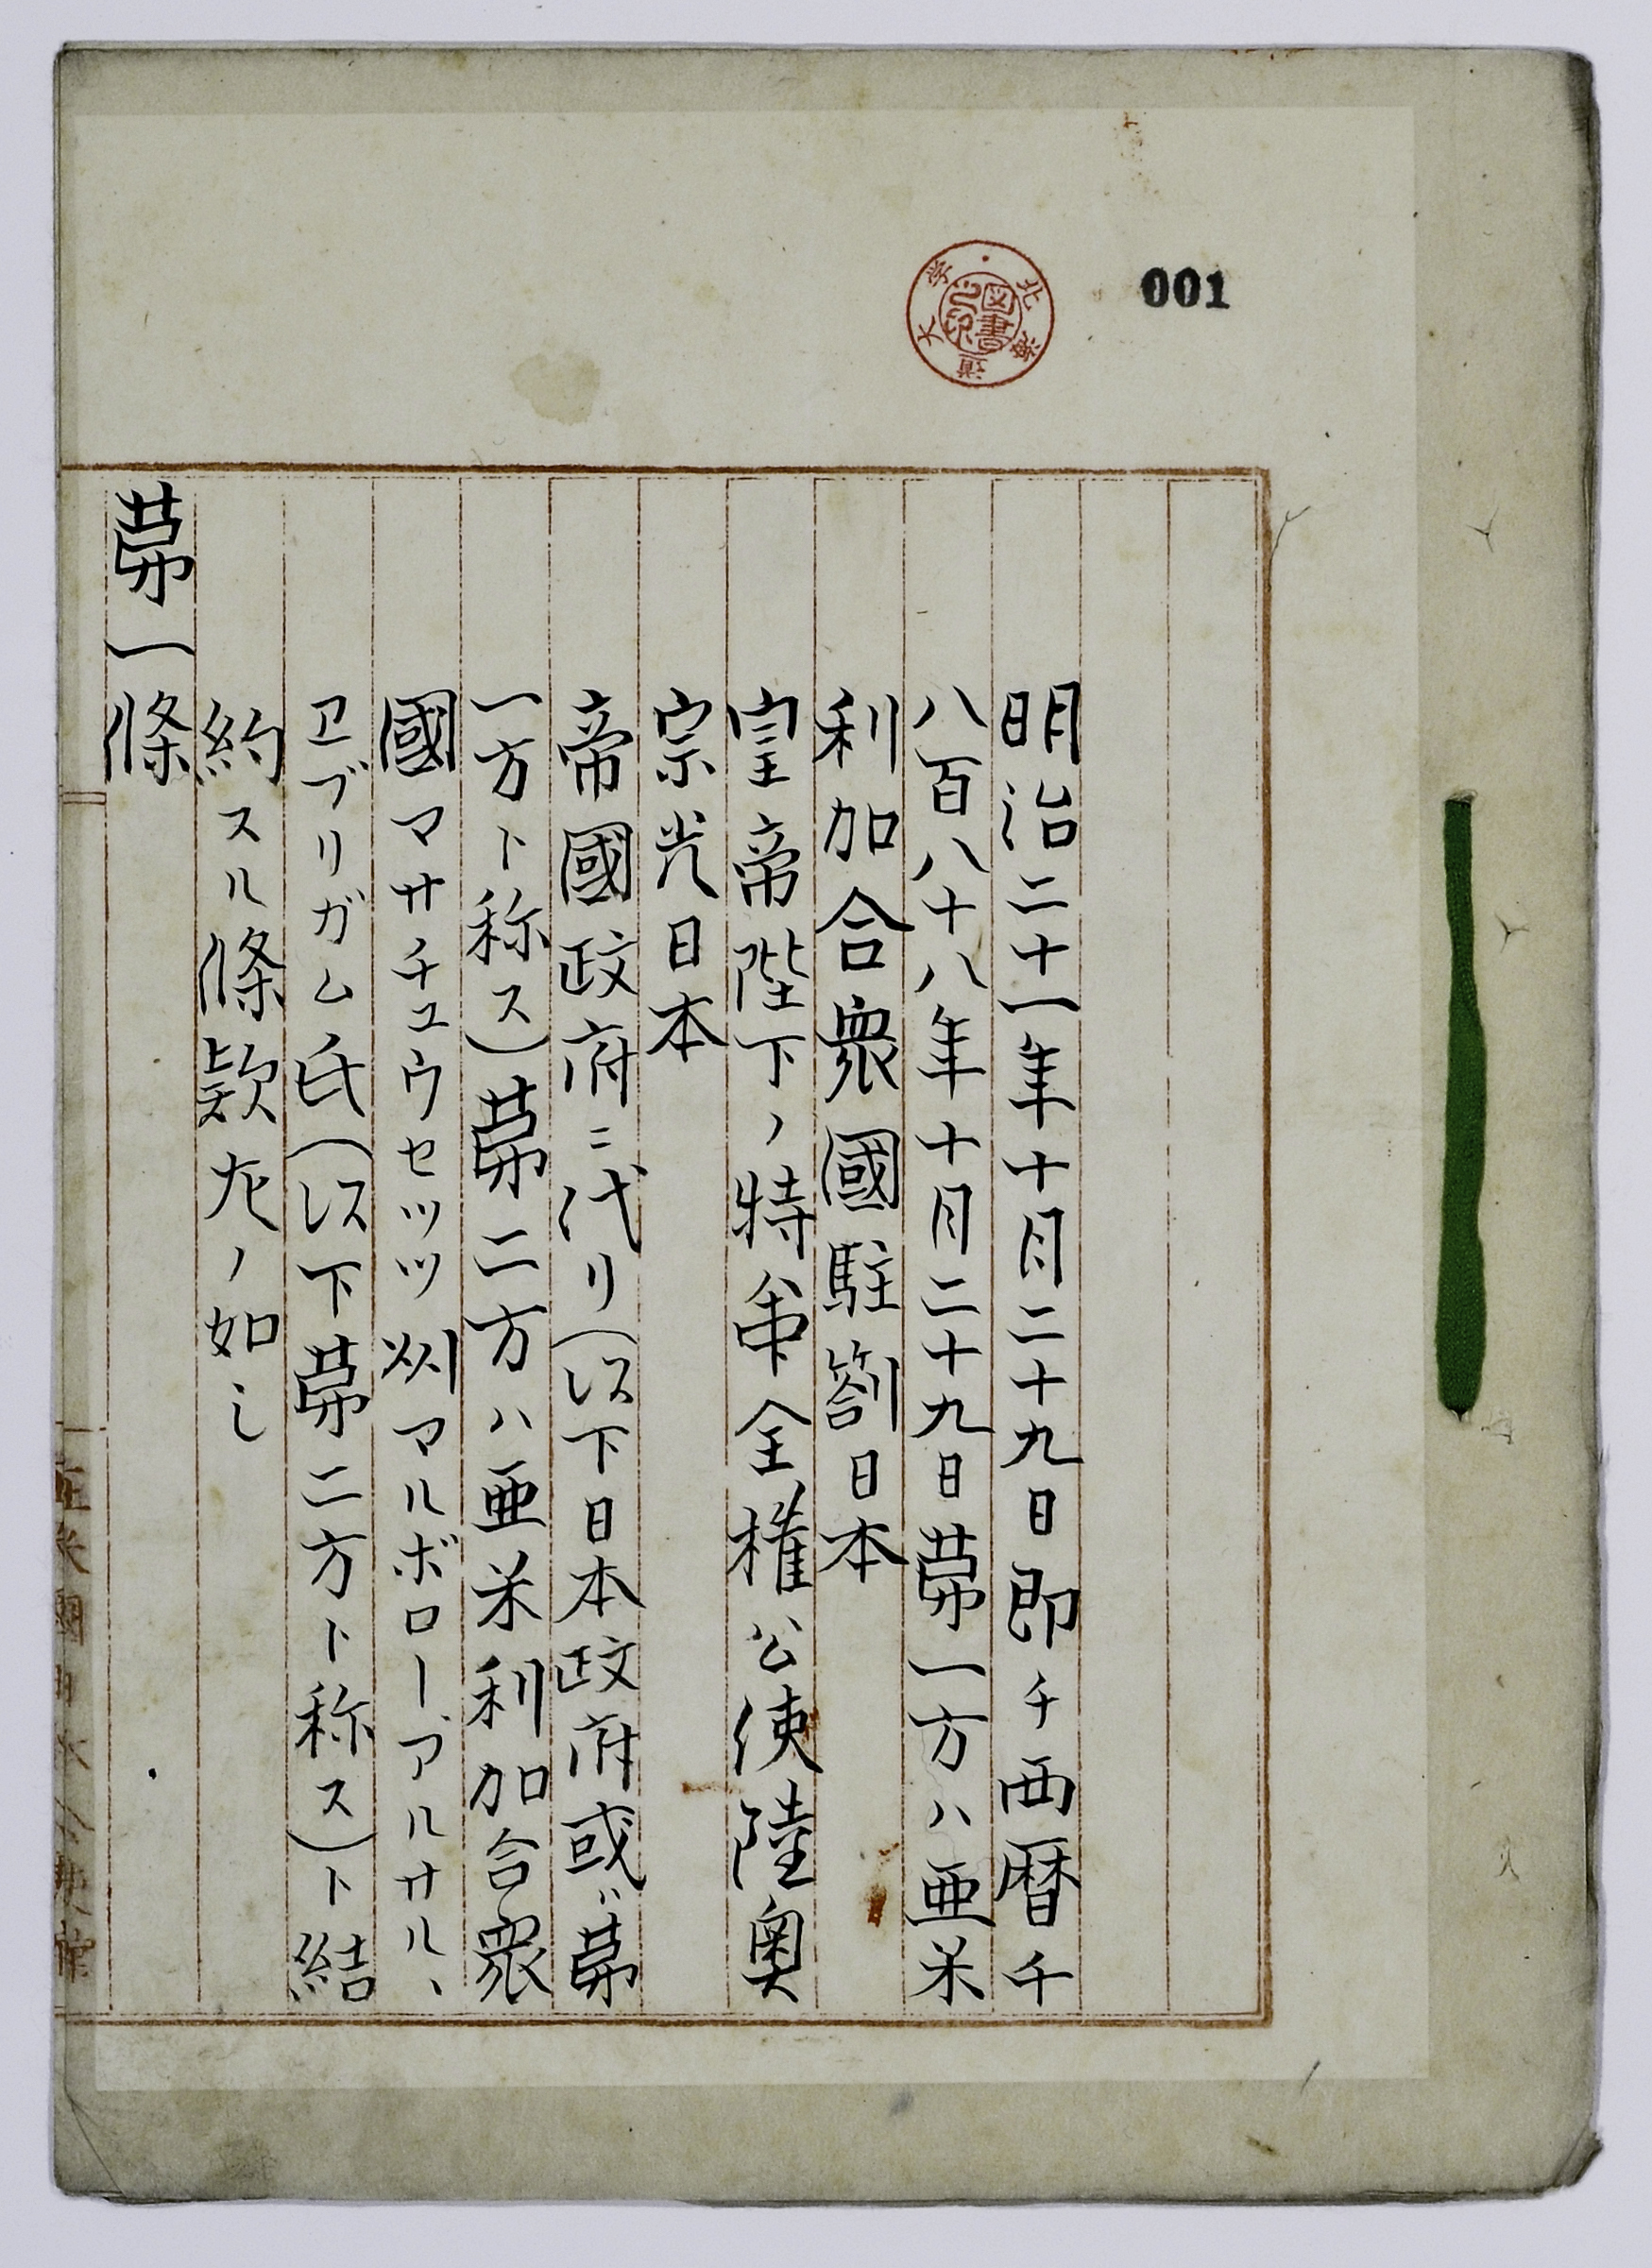 001
北海道大学
図書
明治二十一年十月二十九日即チ西暦千
八百八十八年十月二十九日苐一方ハ亜米
利加合衆國駐劄日本
皇帝陛下ノ特命全権公使陸奥
宗光日本
帝國政府ニ代リ(以下日本政府或ハ苐
一方ト称ス)苐二方ハ亜米利加合衆
國マサチュウセッツ州マルボローアルサル、
ヱブリガム氏(以下苐二方ト称ス)ト結
約スル條欵左ノ如シ
苐一條
在米國日本公使舘